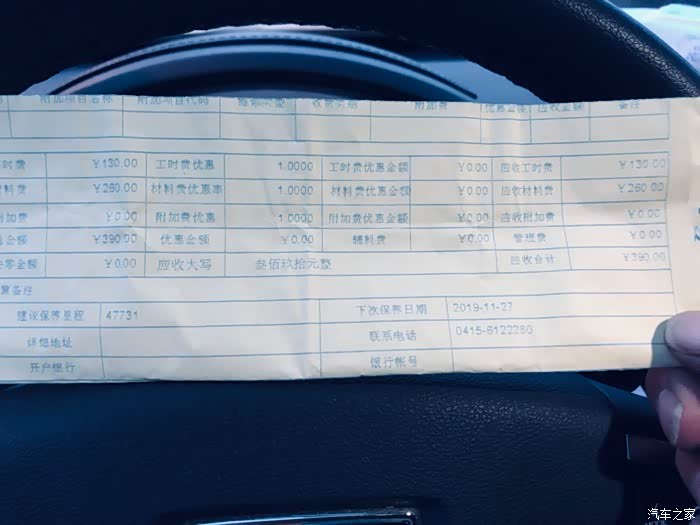 附加项目名称 附加项目代码 维修类型 收费类别 附加费 优惠金额 应收金额 备注
时费 ￥130.00 工时费优惠 1.0000 工时费优惠金额 ￥0.00 应收工时费 ￥130.00
材料费 ￥260.00 材料费优惠率 1.0000 材料费优惠金额 ￥0.00 应收材料费 ￥260.00
附加费 ￥0.00 附加费优惠 1.0000 附加费优惠金额 ￥0.00 应收附加费 ￥0.00
金额 ￥390.00 优惠金额 ￥0.00 辅料费 ￥0.00 管理费 ￥0.00
零金额 ￥0.00 应收大写 叁佰玖拾元整 应收合计 ￥390.00
算备注
建议保养里程 47731 下次保养日期 2019-11-27
详细地址 联系电话 0415-6122280
开户银行 银行帐号
汽车之家